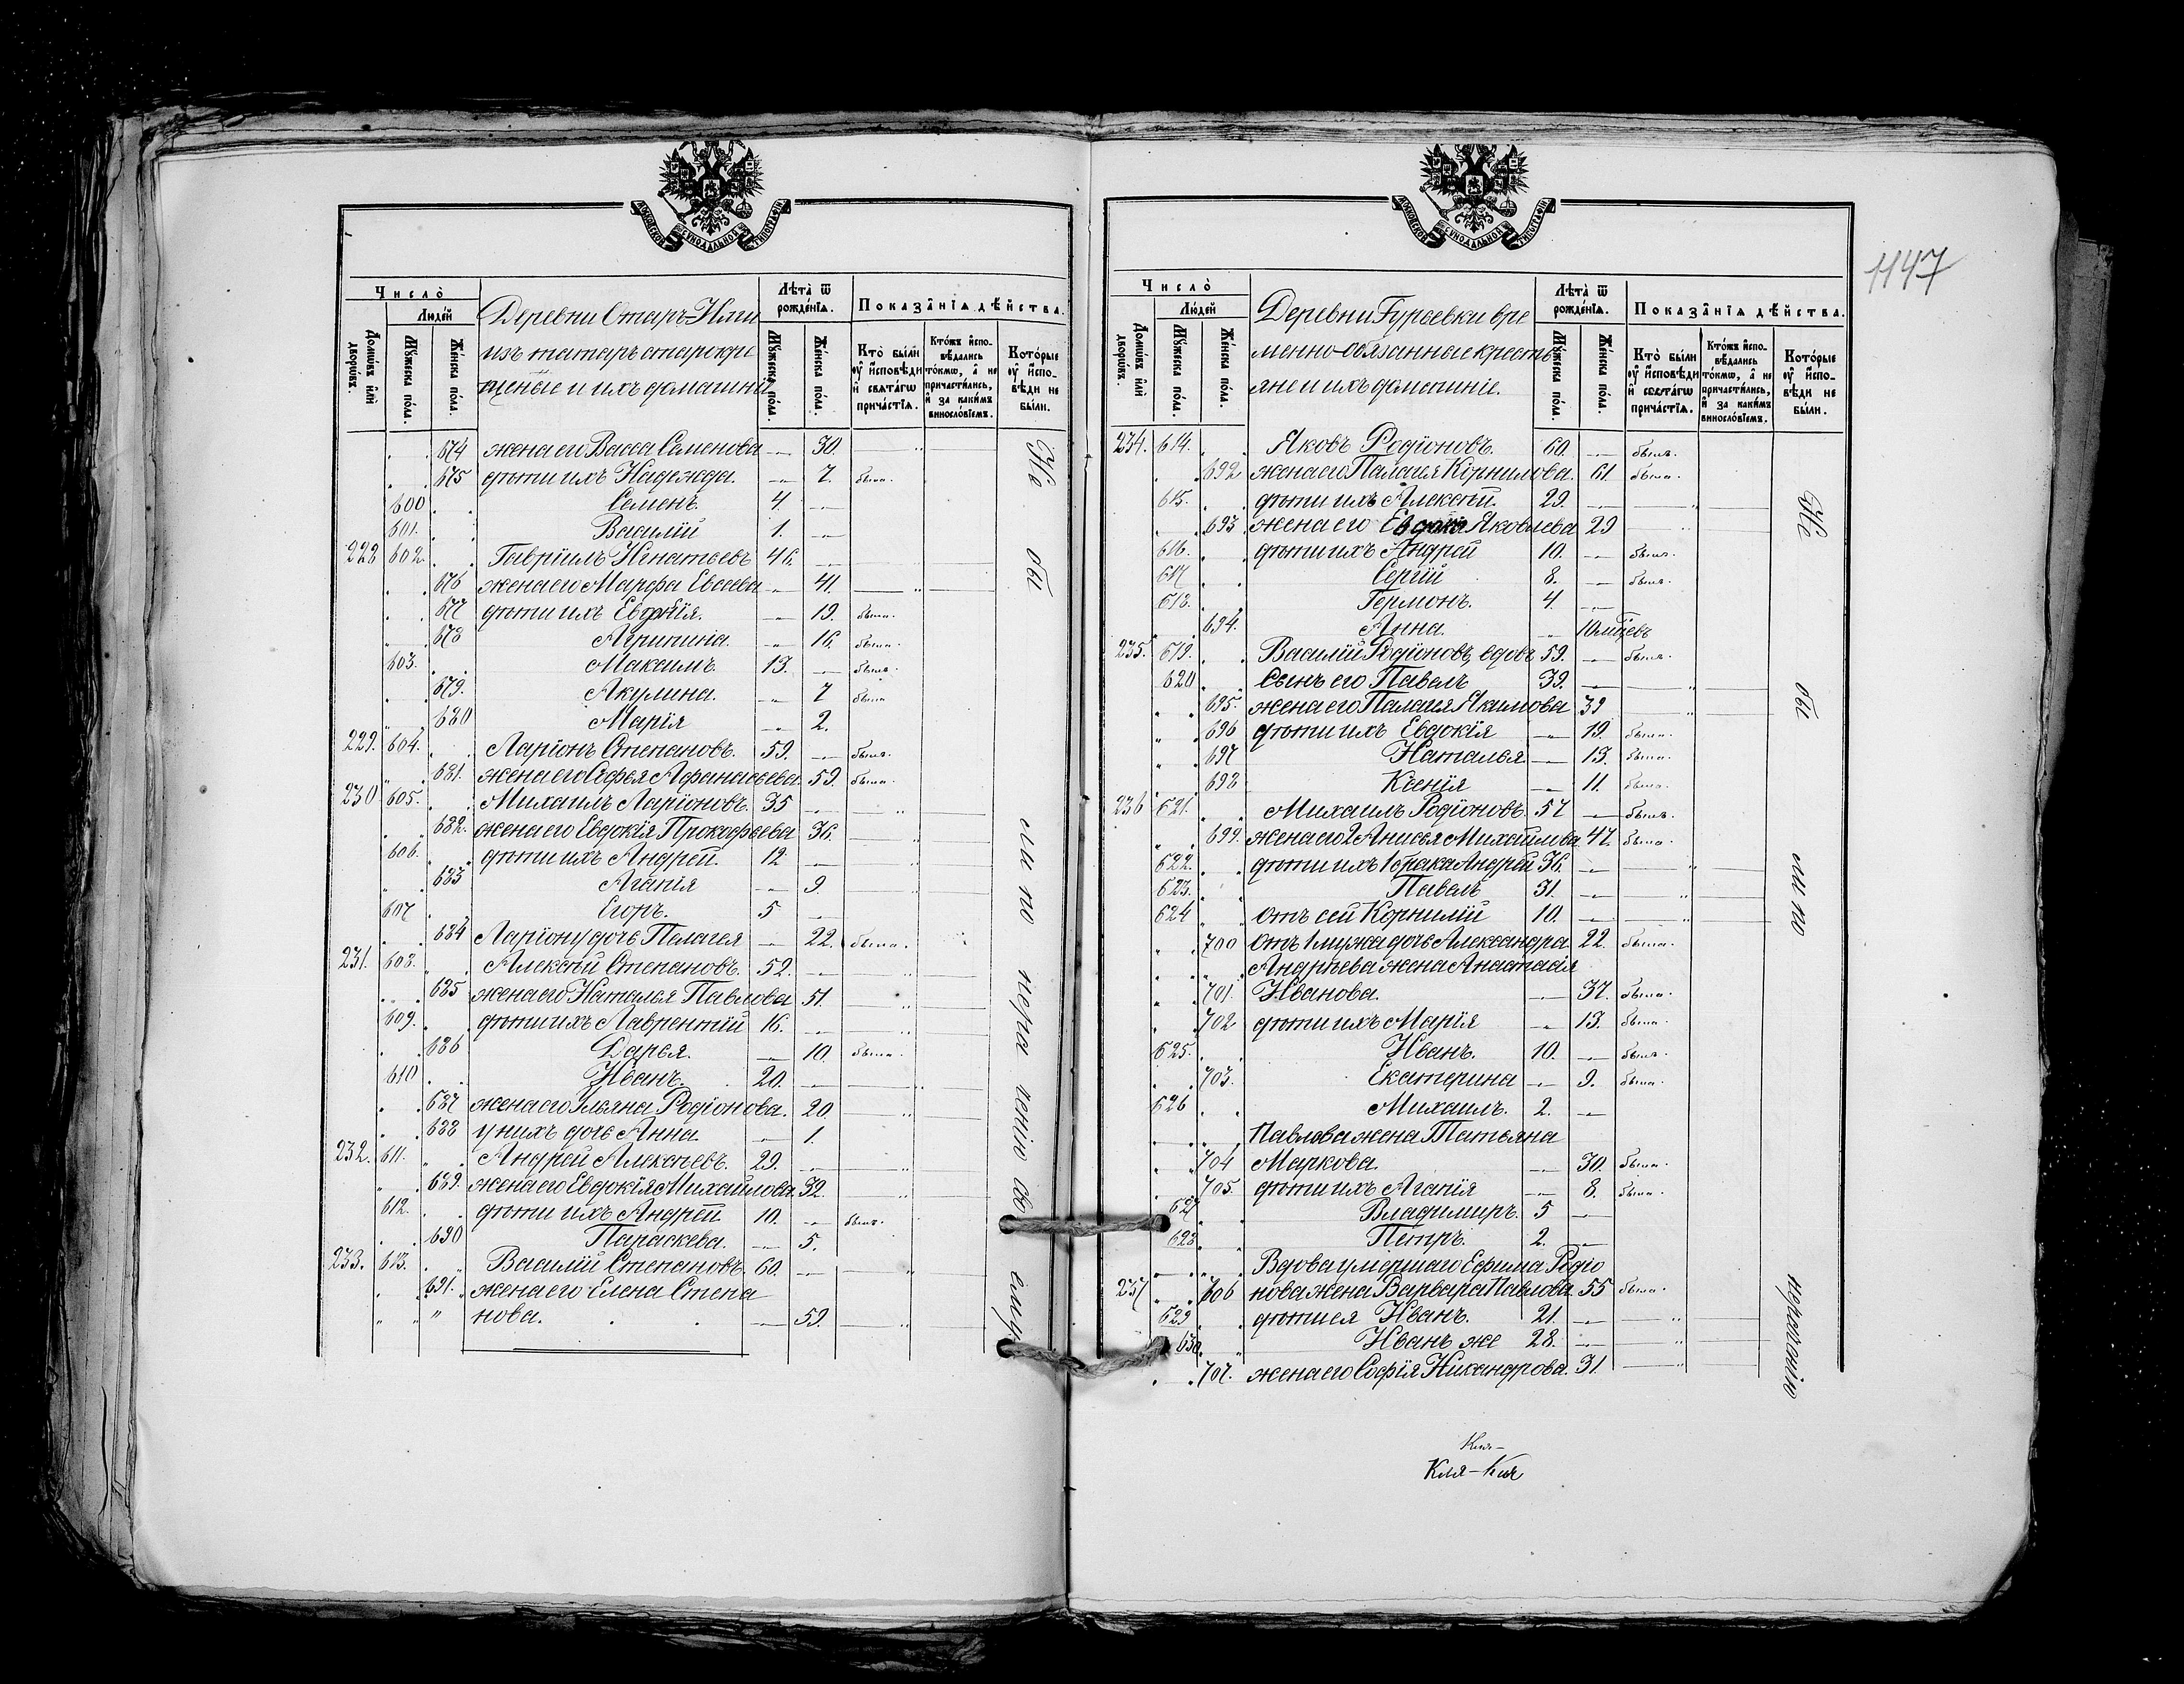 МОСКОВСКОЙ СѴНОДАЛЬНОЙ ТИПОГРАФІИ
Число̀
Людей
Домѡвъ или дворѡвъ.
Мꙋжеска пола.
Женска пола.
Деревни Старъ-
изъ татаръ старокре
щеные и ихъ домашніе
Лѣта ѿ рожденїѧ.
Мꙋжеска пола.
Женска пола.
Показанїѧ дѣйства.
Кто были ᲂу исповѣди и свѧтагѡ причастїѧ.
Ктожъ исповѣдались токмѡ, а не причастились, и за какимъ винословїемъ.
Которые ᲂу исповѣди не были.
674 жена его Васса Семенова 30.
675 дѣти ихъ Надежда. 7. была.
600 Семенъ. 4.
601. Василій 1.
228 602. Гавріилъ Игнатьевъ 46.
676 жена его Марфа Евсеева 41.
677 дѣти ихъ Евдокія. 19. была.
678 Агрипина. 16. была.
603. Максимъ. 13. былъ.
679. Акулина. 7 была
680 Марія 2.
229. 604. Ларіонъ Степановъ. 59. былъ.
681. жена его Софья Афанасьева. 59. была.
230 605. Михаилъ Ларіоновъ. 35
682. жена его Евдокія Прокофьева 36.
606. дѣти ихъ Андрей. 12
683 Агапія 9.
607 Егоръ. 5
684 Ларіону дочь Пелагея 22. была.
231. 608. Алексѣй Степановъ. 52.
685 жена его Наталья Павлова 51.
609. дѣти ихъ Лаврентій 16.
686 Дарья. 10. была.
610 Иванъ. 20.
687 жена его Ульяна Родіонова. 20
688 у нихъ дочь Анна. 1.
232. 611. Андрей Алексѣевъ. 29.
689. жена его Евдокія Михайлова. 32.
612. дѣти ихъ Андрей. 10. былъ.
690 Параскева. 5.
233. 613. Василій Степановъ. 60.
691. жена его Елена Степа
нова. 59.
Не бы ли по нера чению ихъ
1147
МОСКОВСКОЙ СѴНОДАЛЬНОЙ ТИПОГРАФІИ
Число̀
Людей
Домѡвъ или дворѡвъ.
Мꙋжеска пола.
Женска пола.
Деревни Гурьевки вре
менно-обязанные кресть
яне и ихъ домашніе.
Лѣта ѿ рожденїѧ.
Мꙋжеска пола.
Женска пола.
Показанїѧ дѣйства.
Кто были ᲂу исповѣди и свѧтагѡ причастїѧ.
Ктожъ исповѣдались токмѡ, а не причастились, и за какимъ винословїемъ.
Которые ᲂу исповѣди не были.
234. 614. Яковъ Родіоновъ. 60. былъ.
692 жена его Палагея Корнилова. 61. была.
615. дѣти ихъ Алексѣй. 29.
693 жена его Яковлева 29
616. дѣти ихъ Андрей 10. былъ.
617 Сергій 8. былъ.
618. Гермонъ. 4.
694. Анна. 10 мѣсцевъ
235. 619. Василій Родіоновъ, вдовъ 59. былъ.
620 Сынъ его Павелъ 39.
695. жена его Палагея Якимова 39
696 дѣти ихъ Евдокія 19. была.
697 Наталья 13. была.
698 Ксенія 11. была.
236 621. Михаилъ Родіоновъ. 57 былъ.
699. жена его 2 Анисья Михайлова. 47. была.
622. дѣти ихъ 1 брака Андрей 36.
623. Павелъ 31.
624 отъ сей Корнилій 10.
700 отъ 1 мужа дочь Александра. 22. была.
Андрѣева жена Анастасія
701. Иванова. 37. была.
702 дѣти ихъ Марія 13. была.
625. Иванъ. 10. былъ.
703. Екатерина 9. была.
626 Михаилъ. 2.
Павлова жена Татьяна
704 Маркова. 30. была.
705. дѣти ихъ Агапія 8. была.
627 Владимиръ. 5
628 Петръ. 2.
Вдова умершаго Ефима Родіо
237 706 нова жена Варвара Павлова. 55 была.
629 дѣти ея Иванъ. 21.
630. Иванъ же 28.
707. жена его Софія Никандрова. 31
Не бы ли по нерачению
Кля-Кля